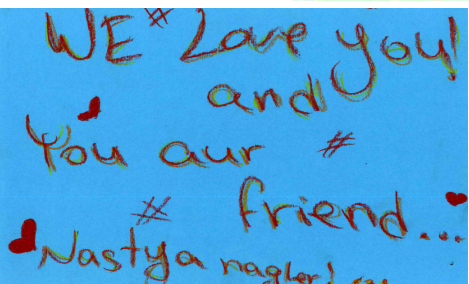 WE # Love you!
and
You aur #
# friend...
Nastya